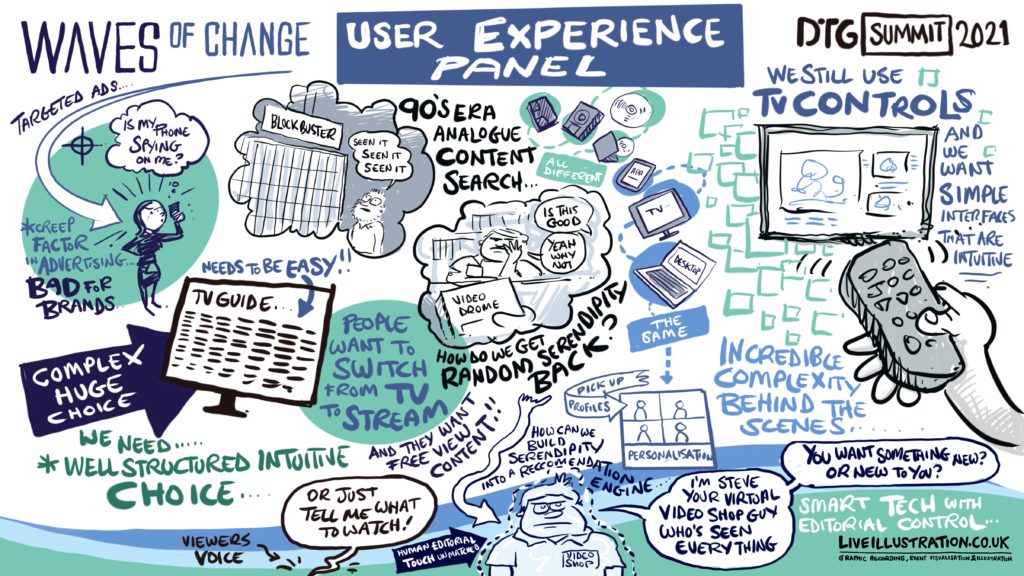 WAVES OF CHANGE
USER EXPERIENCE
PANEL
DTG SUMMIT 2021
TARGETED ADS...
IS MY PHONE
SPYING
ON ME?
*CREEP
FACTOR
IN ADVERTISING...
BAD FOR
BRANDS...
BLOCKBUSTER
SEEN IT
SEEN IT
SEEN IT
90'S ERA
ANALOGUE
CONTENT
SEARCH...
ALL
DIFFERENT
APP
TV
DESKTOP
THE
SAME
IS THIS
GOOD
YEAH
WHY
NOT
VIDEO
DROME
HOW DO WE GET
RANDOM SERENDIPITY
BACK?
WE STILL USE
TV CONTROLS
AND
WE
WANT
SIMPLE
INTERFACES
THAT ARE
INTUITIVE
INCREDIBLE
COMPLEXITY
BEHIND THE
SCENES...
NEEDS TO BE EASY!!
TV GUIDE...
COMPLEX
HUGE
CHOICE
PEOPLE
WANT TO
SWITCH
FROM TV
TO STREAM
AND THEY WANT
FREE VIEW
CONTENT!!
WE NEED.....
*WELL STRUCTURED INTUITIVE
CHOICE....
PICK UP
PROFILES
PERSONALISATION
HOW CAN WE
BUILD
SERENDIPITY
INTO A RECCOMENDATION
ENGINE...
OR JUST
TELL ME WHAT
TO WATCH!
VIEWERS
VOICE
HUMAN EDITORIAL
TOUCH UNMATCHED
VIDEO
SHOP
I'M STEVE
YOUR VIRTUAL
VIDEO SHOP GUY
WHO'S SEEN
EVERYTHING
YOU WANT SOMETHING NEW?
OR NEW TO YOU?
SMART TECH WITH
EDITORIAL CONTROL...
LIVEILLUSTRATION.CO.UK
GRAPHIC RECORDING, EVENT VISUALISATION & ILLUSTRATION